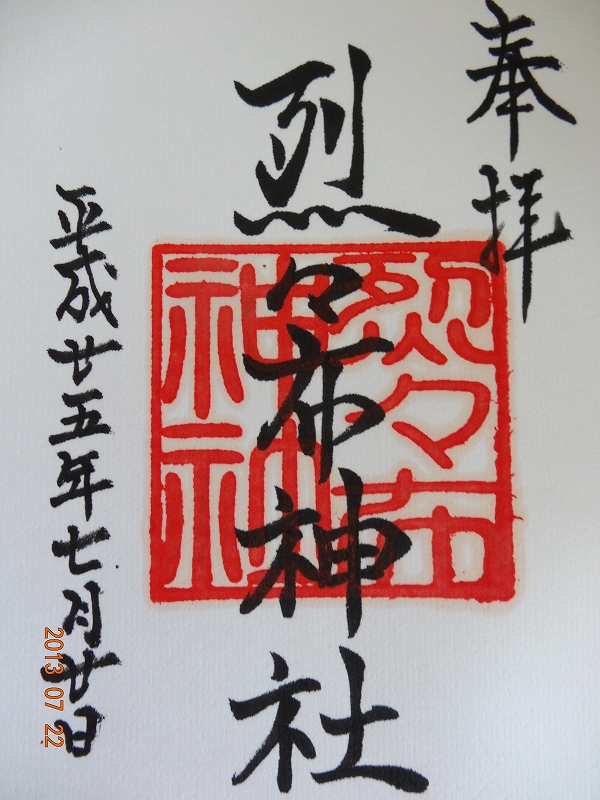 奉拝
烈々布神社
烈々布神社
平成廿五年七月廿日
2013 07 22